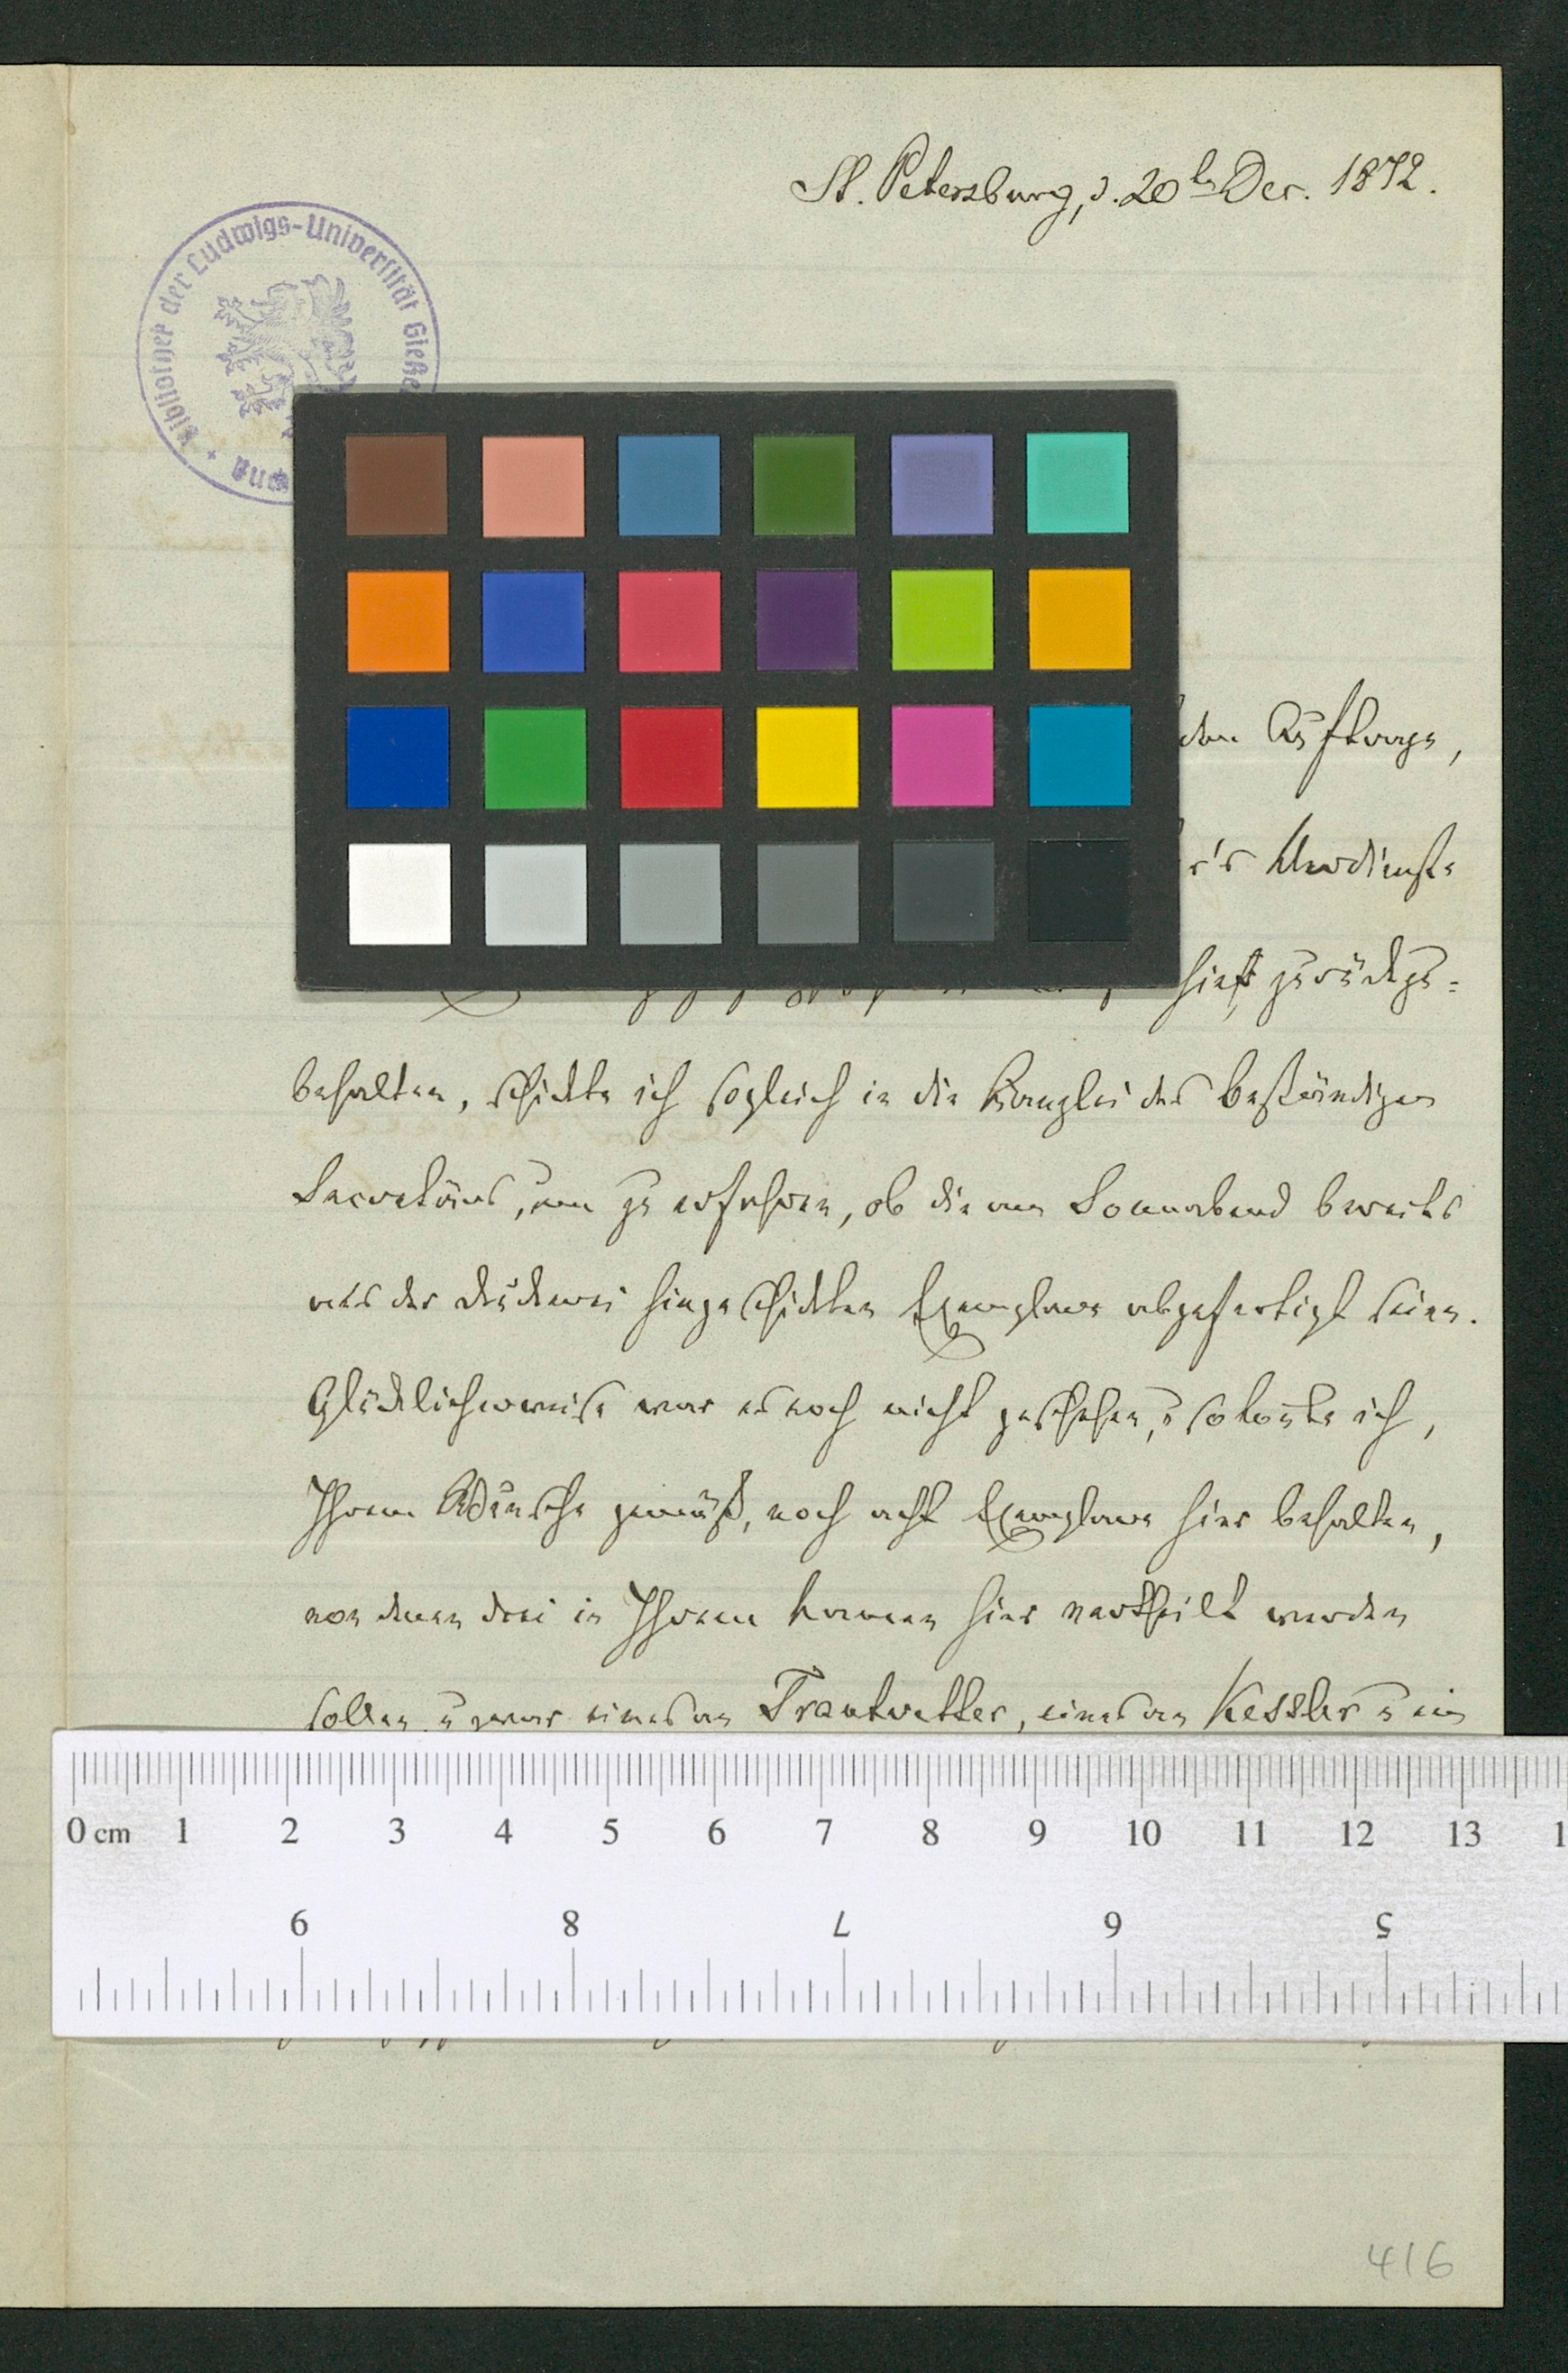 St. Petersburg, d. 20ten Dec. 1872.
Bibliothek der Ludwigs-Universität Gieße
dem Auftrage,
r's Verdienste
hieſt zurückge=
behalten, schickte ich sogleich in die Kanzlei des beständigen
Secretärs, um zu erfahren, ob die am Sonnabend bereits
aus der Druckerei hingeschickten Exemplare abgefertigt seien.
Glücklicherweise war es noch nicht geschehen, u so konnte ich,
Ihrem Wunsche gemäß, noch acht Exemplare hier behalten,
von denen drei in Ihrem Namen hier vertheilt werden
sollen u zwar eines an Trautvetter, eines an Kessler u ein
0 cm 1 2 3 4 5 6 7 8 9 10 11 12 13 1
9 8 7 6 5
416